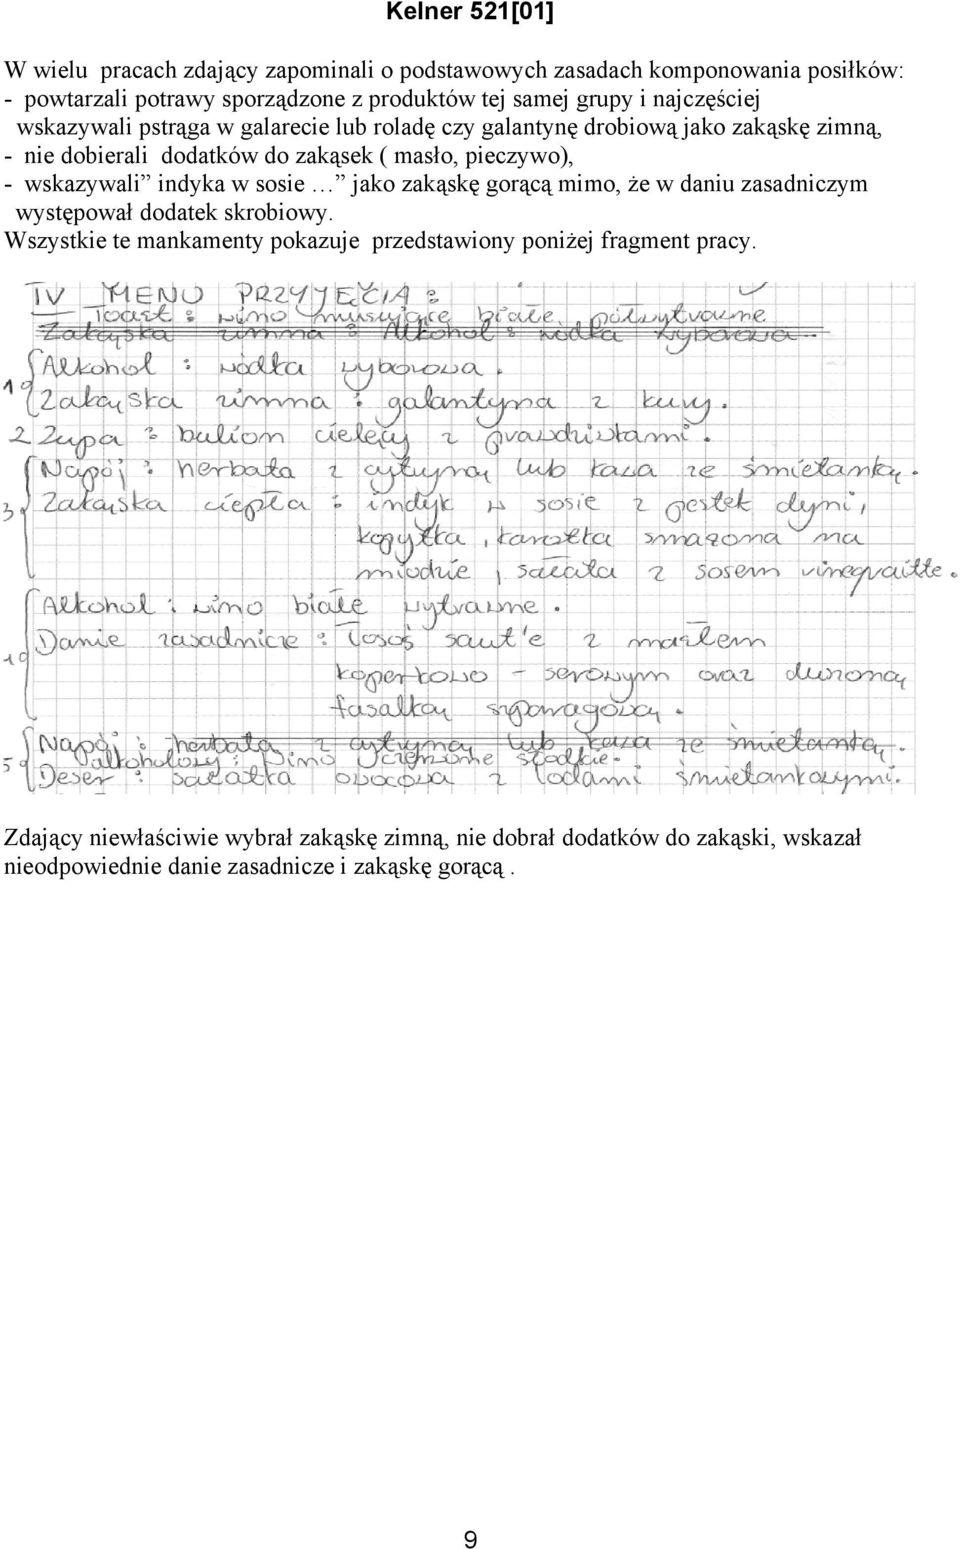 Kelner 521[01]
W wielu pracach zdający zapominali o podstawowych zasadach komponowania posiłków:
- powtarzali potrawy sporządzone z produktów tej samej grupy i najczęściej
wskazywali pstrąga w galarecie lub roladę czy galantynę drobiową jako zakąskę zimną,
- nie dobierali dodatków do zakąsek ( masło, pieczywo),
- wskazywali” indyka w sosie … ” jako zakąskę gorącą mimo, że w daniu zasadniczym
występował dodatek skrobiowy.
Wszystkie te mankamenty pokazuje przedstawiony poniżej fragment pracy.
IV MENU PRZYJĘCIA :
Toast : wino musujące białe półwytrawne
Zakąska zimna : Alkohol : wódka wyborowa
Alkohol : wódka wyborowa.
1 Zakąska zimna : galantyna z kury.
2 Zupa : bulion cielęcy z prawdziwkami.
Napój : herbata z cytryną lub kawa ze śmietanką.
3. Zakąska ciepła : indyk w sosie z pestek dyni,
kopytka, karotka smażona na
miodzie, sałata z sosem vinegraitte.
Alkohol : wino białe wytrawne.
Danie zasadnicze : łosoś saut'e z masłem
koperkowo - serowym oraz duszoną
fasolką szparagową.
Napój : herbata z cytryną lub kawa ze śmietanką.
alkoholowy : Wino czerwone słodkie.
5 Deser : sałatka owocowa z lodami śmietankowymi.
Zdający niewłaściwie wybrał zakąskę zimną, nie dobrał dodatków do zakąski, wskazał
nieodpowiednie danie zasadnicze i zakąskę gorącą .
9